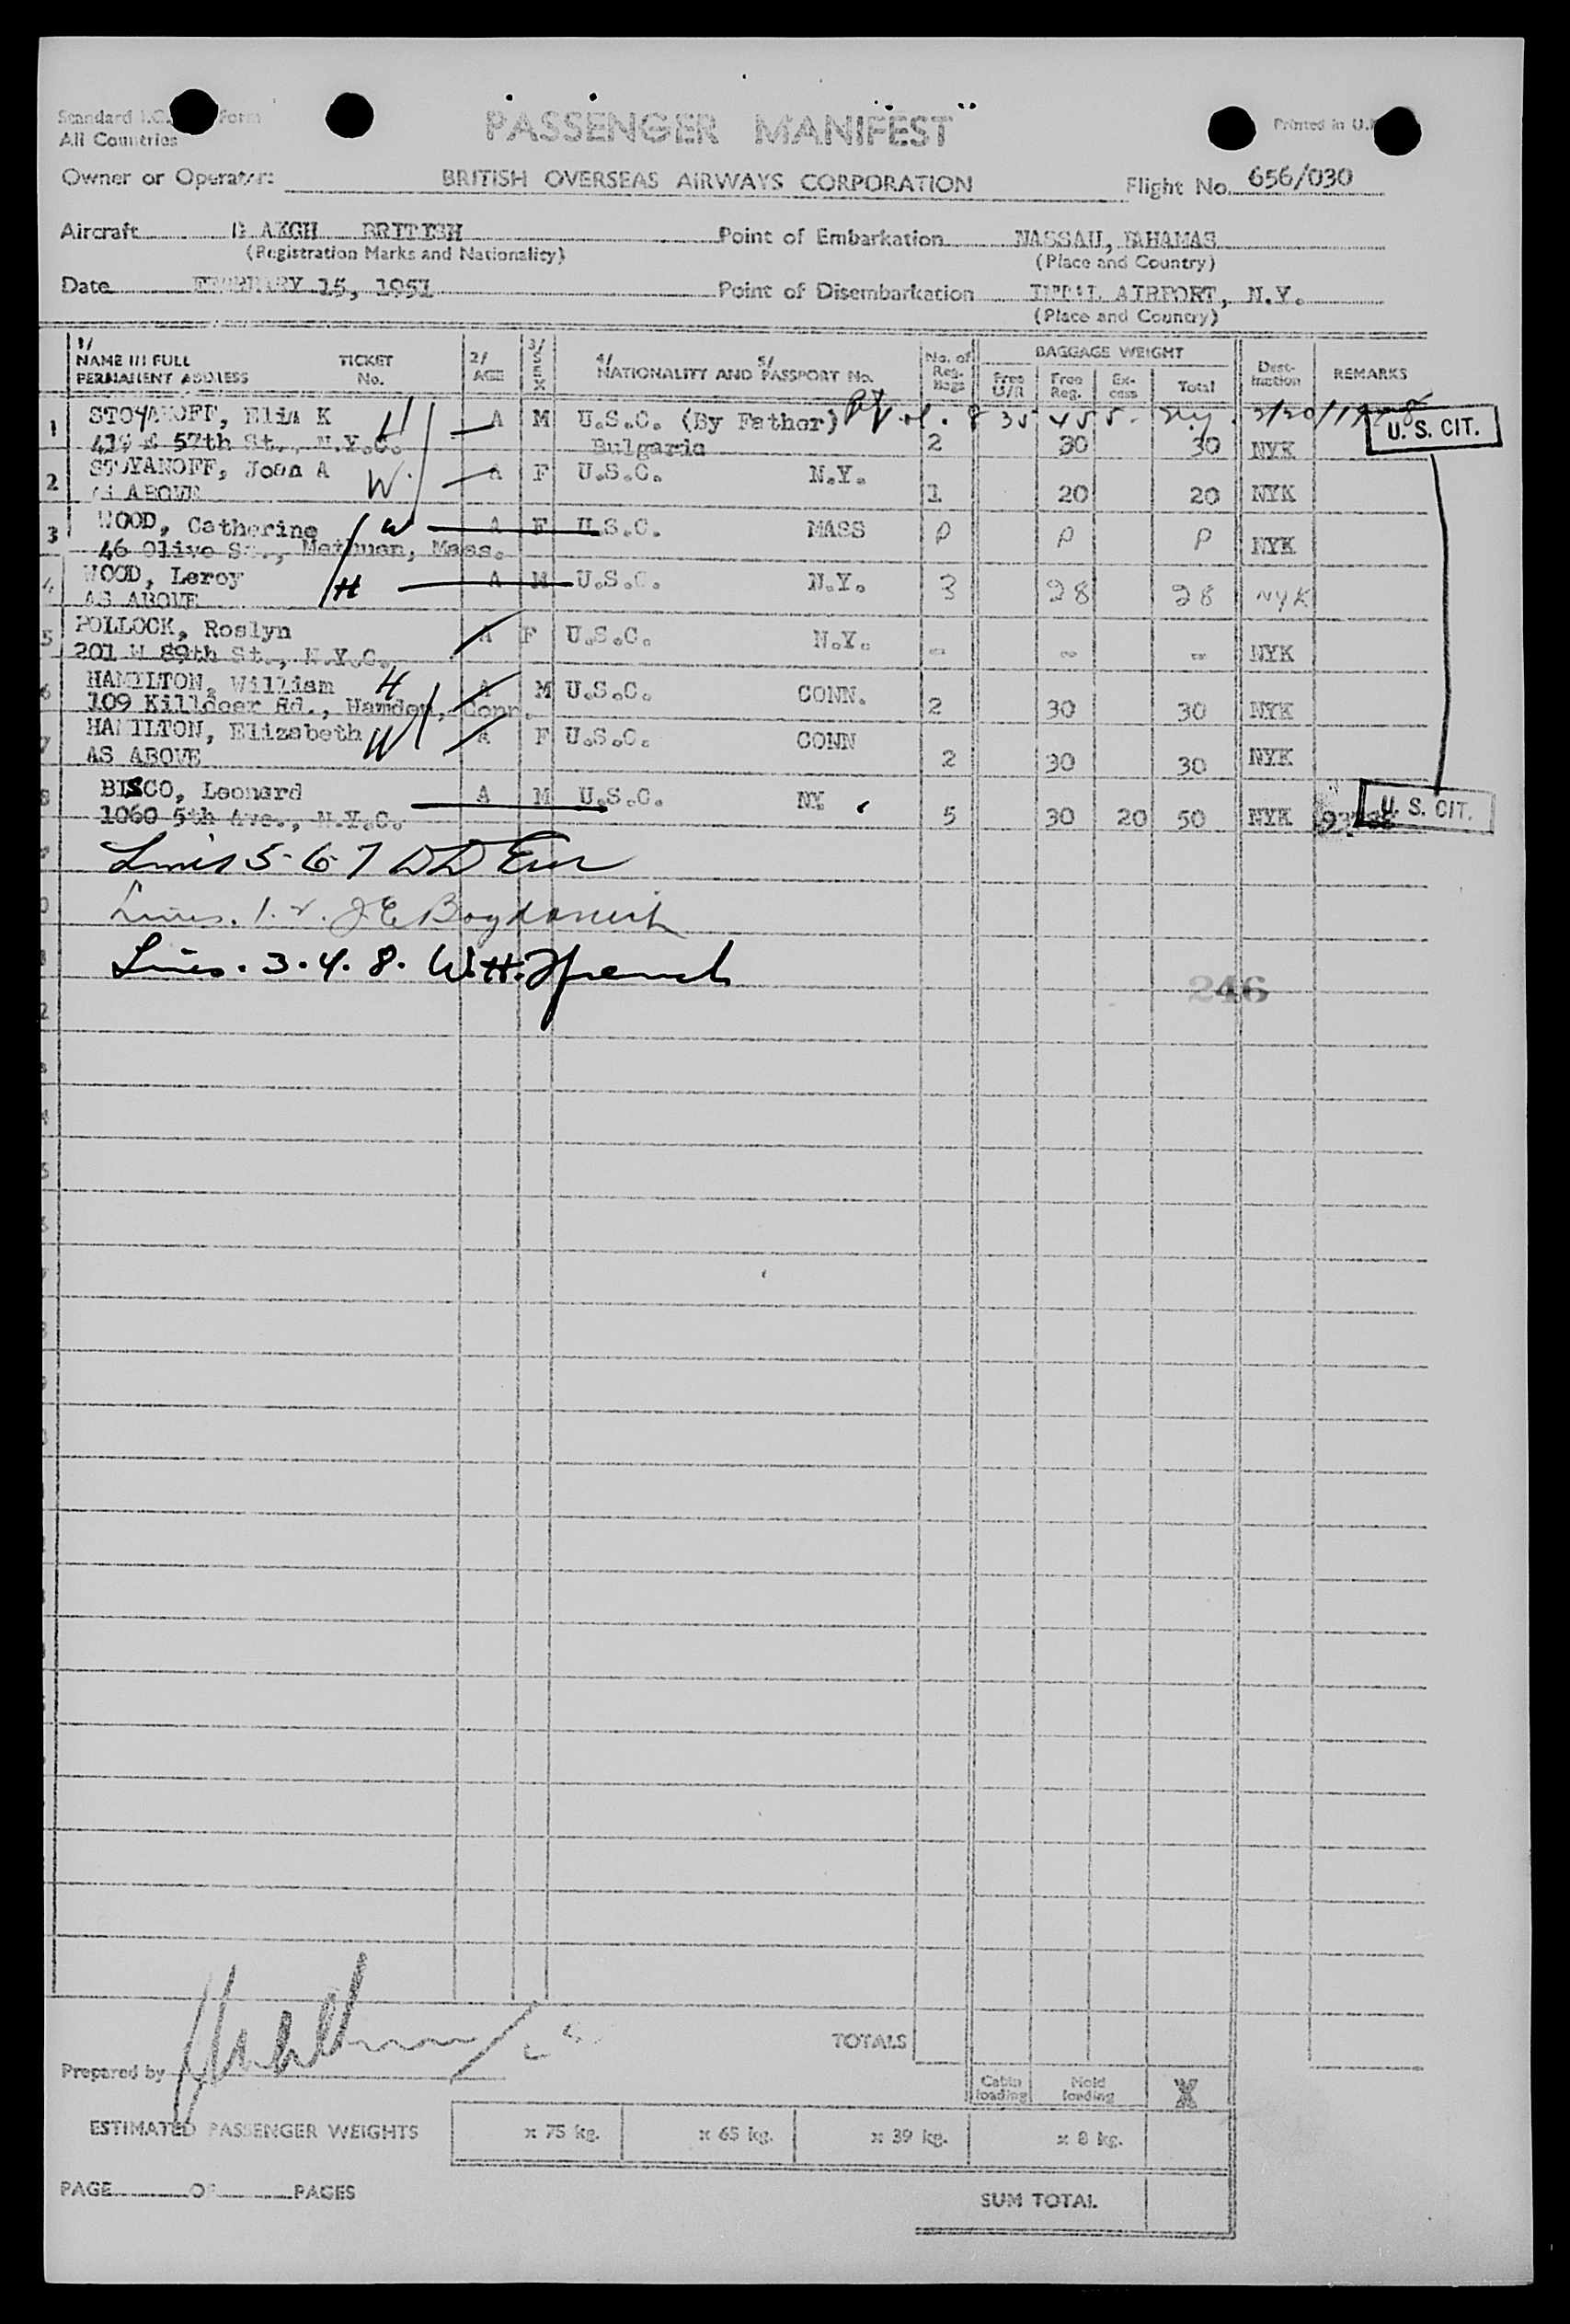 Standard I.C. Form
All Countries
PASSENGER MANIFEST
Printed in U.
Owner or Operator: BRITISH OVERSEAS AIRWAYS CORPORATION Flight No. 656/030
Aircraft AKGH BRITISH Point of Embarkation NASSAU, BAHAMAS
(Registration Marks and Nationality) (Place and Country)
Date FEBRUARY 15, 1951 Point of Disembarkation INT'L AIRPORT, N.Y.
(Place and Country)
1/ NAME IN FULL TICKET 2/ 3/ SEX 4/ 5/ No. of BAGGAGE WEIGHT Dest- REMARKS
PERMANENT ADDRESS No. AGE NATIONALITY AND PASSPORT No. Reg. Bags Free U/A Free Reg. Ex-cess Total ination
1 STOYANOFF, Elia K H A M U.S.C. (By Father)
57th St., N.Y.C. Bulgaria 2 30 30 NYK U. S. CIT.
2 STOYANOFF, Joan A W A F U.S.C. N.Y.
AS ABOVE 1 20 20 NYK
3 WOOD, Catherine W A F U.S.C. MASS P P P
46 Olive St., Methuen, Mass. NYK
4 WOOD, Leroy H A M U.S.C. N.Y. 3 28 28 NYK
AS ABOVE
5 POLLOCK, Roslyn A F U.S.C. N.Y. - - -
201 W 89th St., N.Y.C. NYK
6 HAMILTON, William H A M U.S.C. CONN.
109 Killdeer Rd., Hamden, Conn. 2 30 30 NYK
7 HAMILTON, Elizabeth W A F U.S.C. CONN
AS ABOVE 2 30 30 NYK
8 BISCO, Leonard A M U.S.C. NY.
1060 5th Ave., N.Y.C. 5 30 20 50 NYK U. S. CIT.
Lines 5-6-7
Lines. 1. 2.
Lines. 3. 4. 8. W.H. French
246
TOTALS
Prepared by
Cabin loading Hold loading X
ESTIMATED PASSENGER WEIGHTS x 75 kg. x 65 kg. x 39 kg. x 8 kg.
PAGE OF PAGES
SUM TOTAL